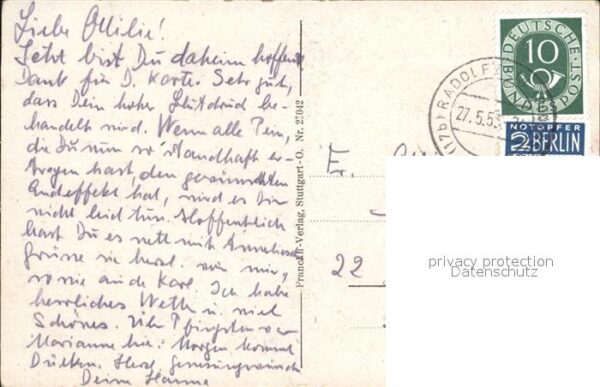 Liebe Ottilie!
Jetzt bist Du daheim hoffentl.
Dank für D. Karte. Sehr gut,
dass Dein hoher Blutdruck be-
handelt wird. Wenn alle Pein,
die Du nun so standhaft er-
tragen hast, den gewünschten
Endeffekt hat, wird es Dir
nicht leid tun. Hoffentlich
hast Du es nett mit Anneliese
grüsse sie herzl. von mir,
sowie auch Karl. Ich habe
herrliches Wetter u. viel
Schönes. Über Pfingsten war
Marianne hier. Morgen kommt
Herzl.
Deine Hanna
Franckh-Verlag, Stuttgart-O. Nr. 22042
22
DEUTSCHE
BUNDESPOST
10
RADOLFZ
27.5.53
NOTOPFER
2 BERLIN
privacy protection
Datenschutz